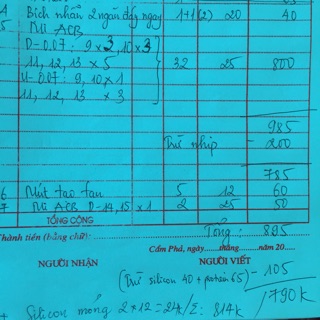 Bịch nhấn 2 ngăn đáy ngay 1+1(2) 20 40
5 Mi ACB
D-0.07: 9x3, 10x3
11, 12, 13 x 5 32 25 800
U-0.07: 9, 10 x 1
11, 12, 13 x 3
985
Trừ nhíp - 200
785
6 Mút tạo fan 5 12 60
7 Mi ACB D-14, 15 x 1 2 25 50
TỔNG CỘNG
Tổng: 895
Thành tiền (bằng chữ):
Cẩm Phả, ngày......tháng......năm 20....
NGƯỜI NHẬN NGƯỜI VIẾT
(Trừ silicon 40 + protein 65) - 105
790k
+ Silicon mỏng 2x12=24k/Σ: 814k